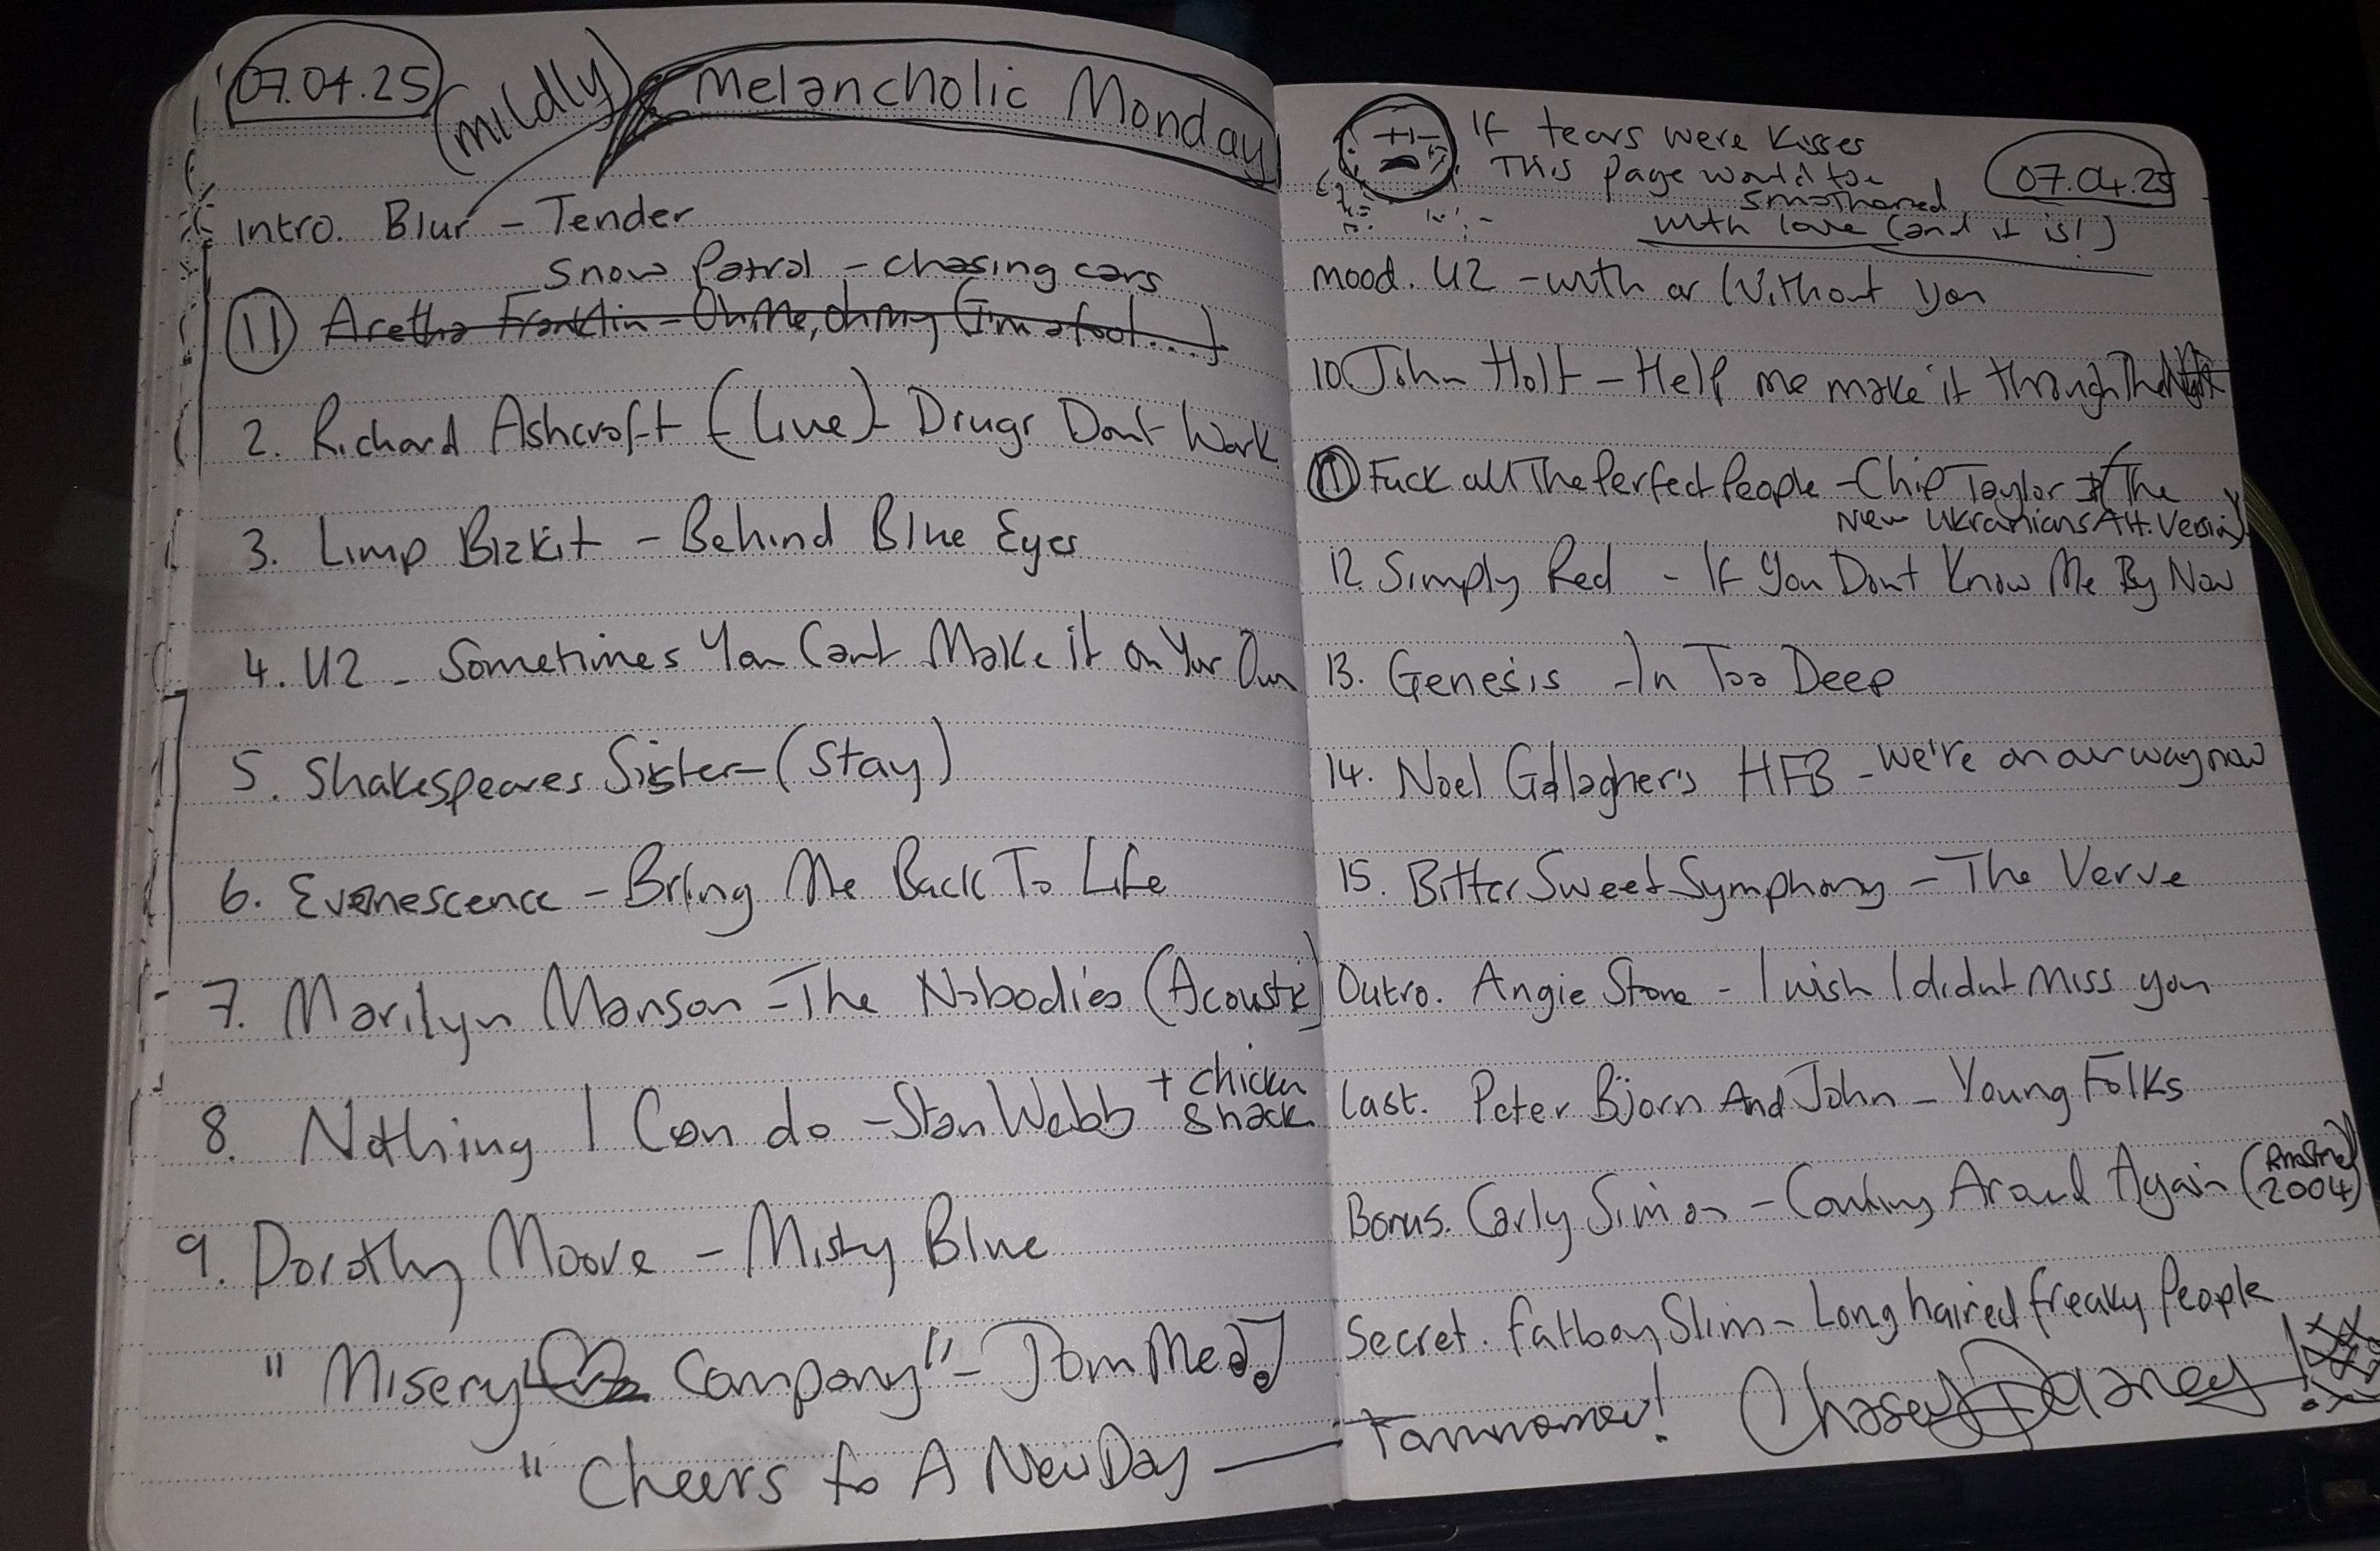 07.04.25 (mildly) Melancholic Monday
Intro. Blur - Tender
Snow Patrol - chasing cars
11 Aretha Franklin - Oh Me, oh my (I'm a fool....)
2. Richard Ashcroft (Live) - Drugs Dont Work
3. Limp Bizkit - Behind Blue Eyes
4. U2 - Sometimes You Cant Make it on Your Own
5. Shakespeares Sister - (Stay)
6. Evanescence - Bring Me Back To Life
7. Marilyn Manson - The Nobodies (Acoustic)
8. Nothing I Can do - Stan Webb + chicken
shack
9. Dorothy Moore - Misty Blue
"Misery Company" - Join Me?!
"Cheers to A New Day — Tommorrow!
If tears were kisses
This page would be
smothered
with love (and it is!)
07.04.25
mood. U2 - with or Without you
10 John Holt - Help me make it through The Night
11 Fuck all The Perfect People - Chip Taylor & (The
New Ukranians Alt. Version)
12. Simply Red - If You Dont Know Me By Now
13. Genesis - In Too Deep
14. Noel Gallagher's HFB - we're on our way now
15. Bitter Sweet Symphony - The Verve
Outro. Angie Stone - I wish I didnt Miss you
Last. Peter Bjorn And John - Young Folks
Bonus. Carly Simon - Coming Around Again (2004)
Secret. Fatboy Slim - Long haired freaky People
Chasey Delaney!